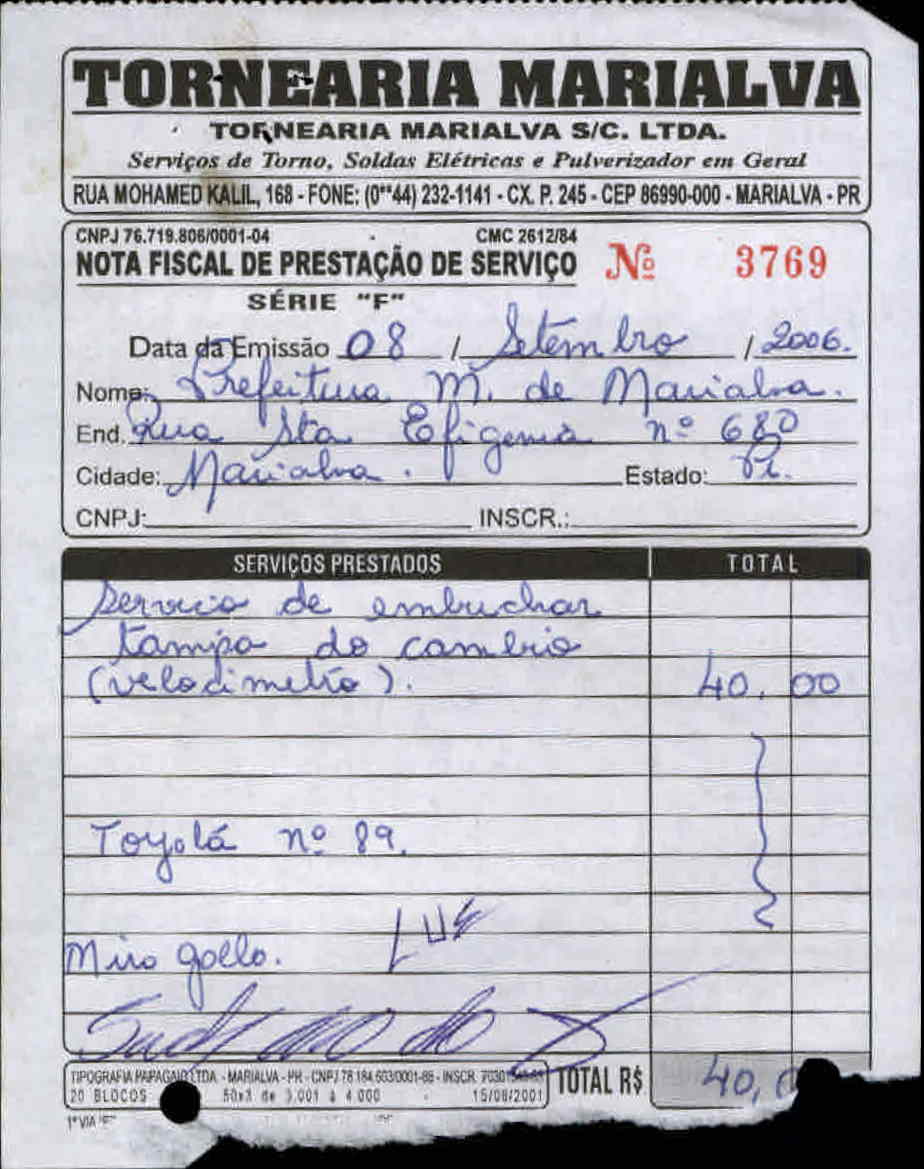 TORNEARIA MARIALVA
TORNEARIA MARIALVA S/C. LTDA.
Serviços de Torno, Soldas Elétricas e Pulverizador em Geral
RUA MOHAMED KALIL, 168 - FONE: (0**44) 232-1141 - CX. P. 245 - CEP 86990-000 - MARIALVA - PR
CNPJ 76.719.806/0001-04 CMC 2612/84
NOTA FISCAL DE PRESTAÇÃO DE SERVIÇO Nº 3769
SÉRIE "F"
Data da Emissão 08 / Setembro / 2006.
Nome: Prefeitura M. de Marialva.
End. Rua Sta Efigenia nº 680
Cidade: Marialva. Estado: Pr.
CNPJ: INSCR.:
SERVIÇOS PRESTADOS TOTAL
Servico de embuchar
tampa do cambio
(velocimetro). 40,00
Toyotá nº 89.
Miro Gollo.
TIPOGRAFIA PAPAGAIO LTDA. - MARIALVA - PR - CNPJ 78.184.603/0001-88 - INSCR.
20 BLOCOS 50x3 de 3.001 à 4.000 - 15/08/2001
TOTAL R$ 40,0
1ª VIA "F"